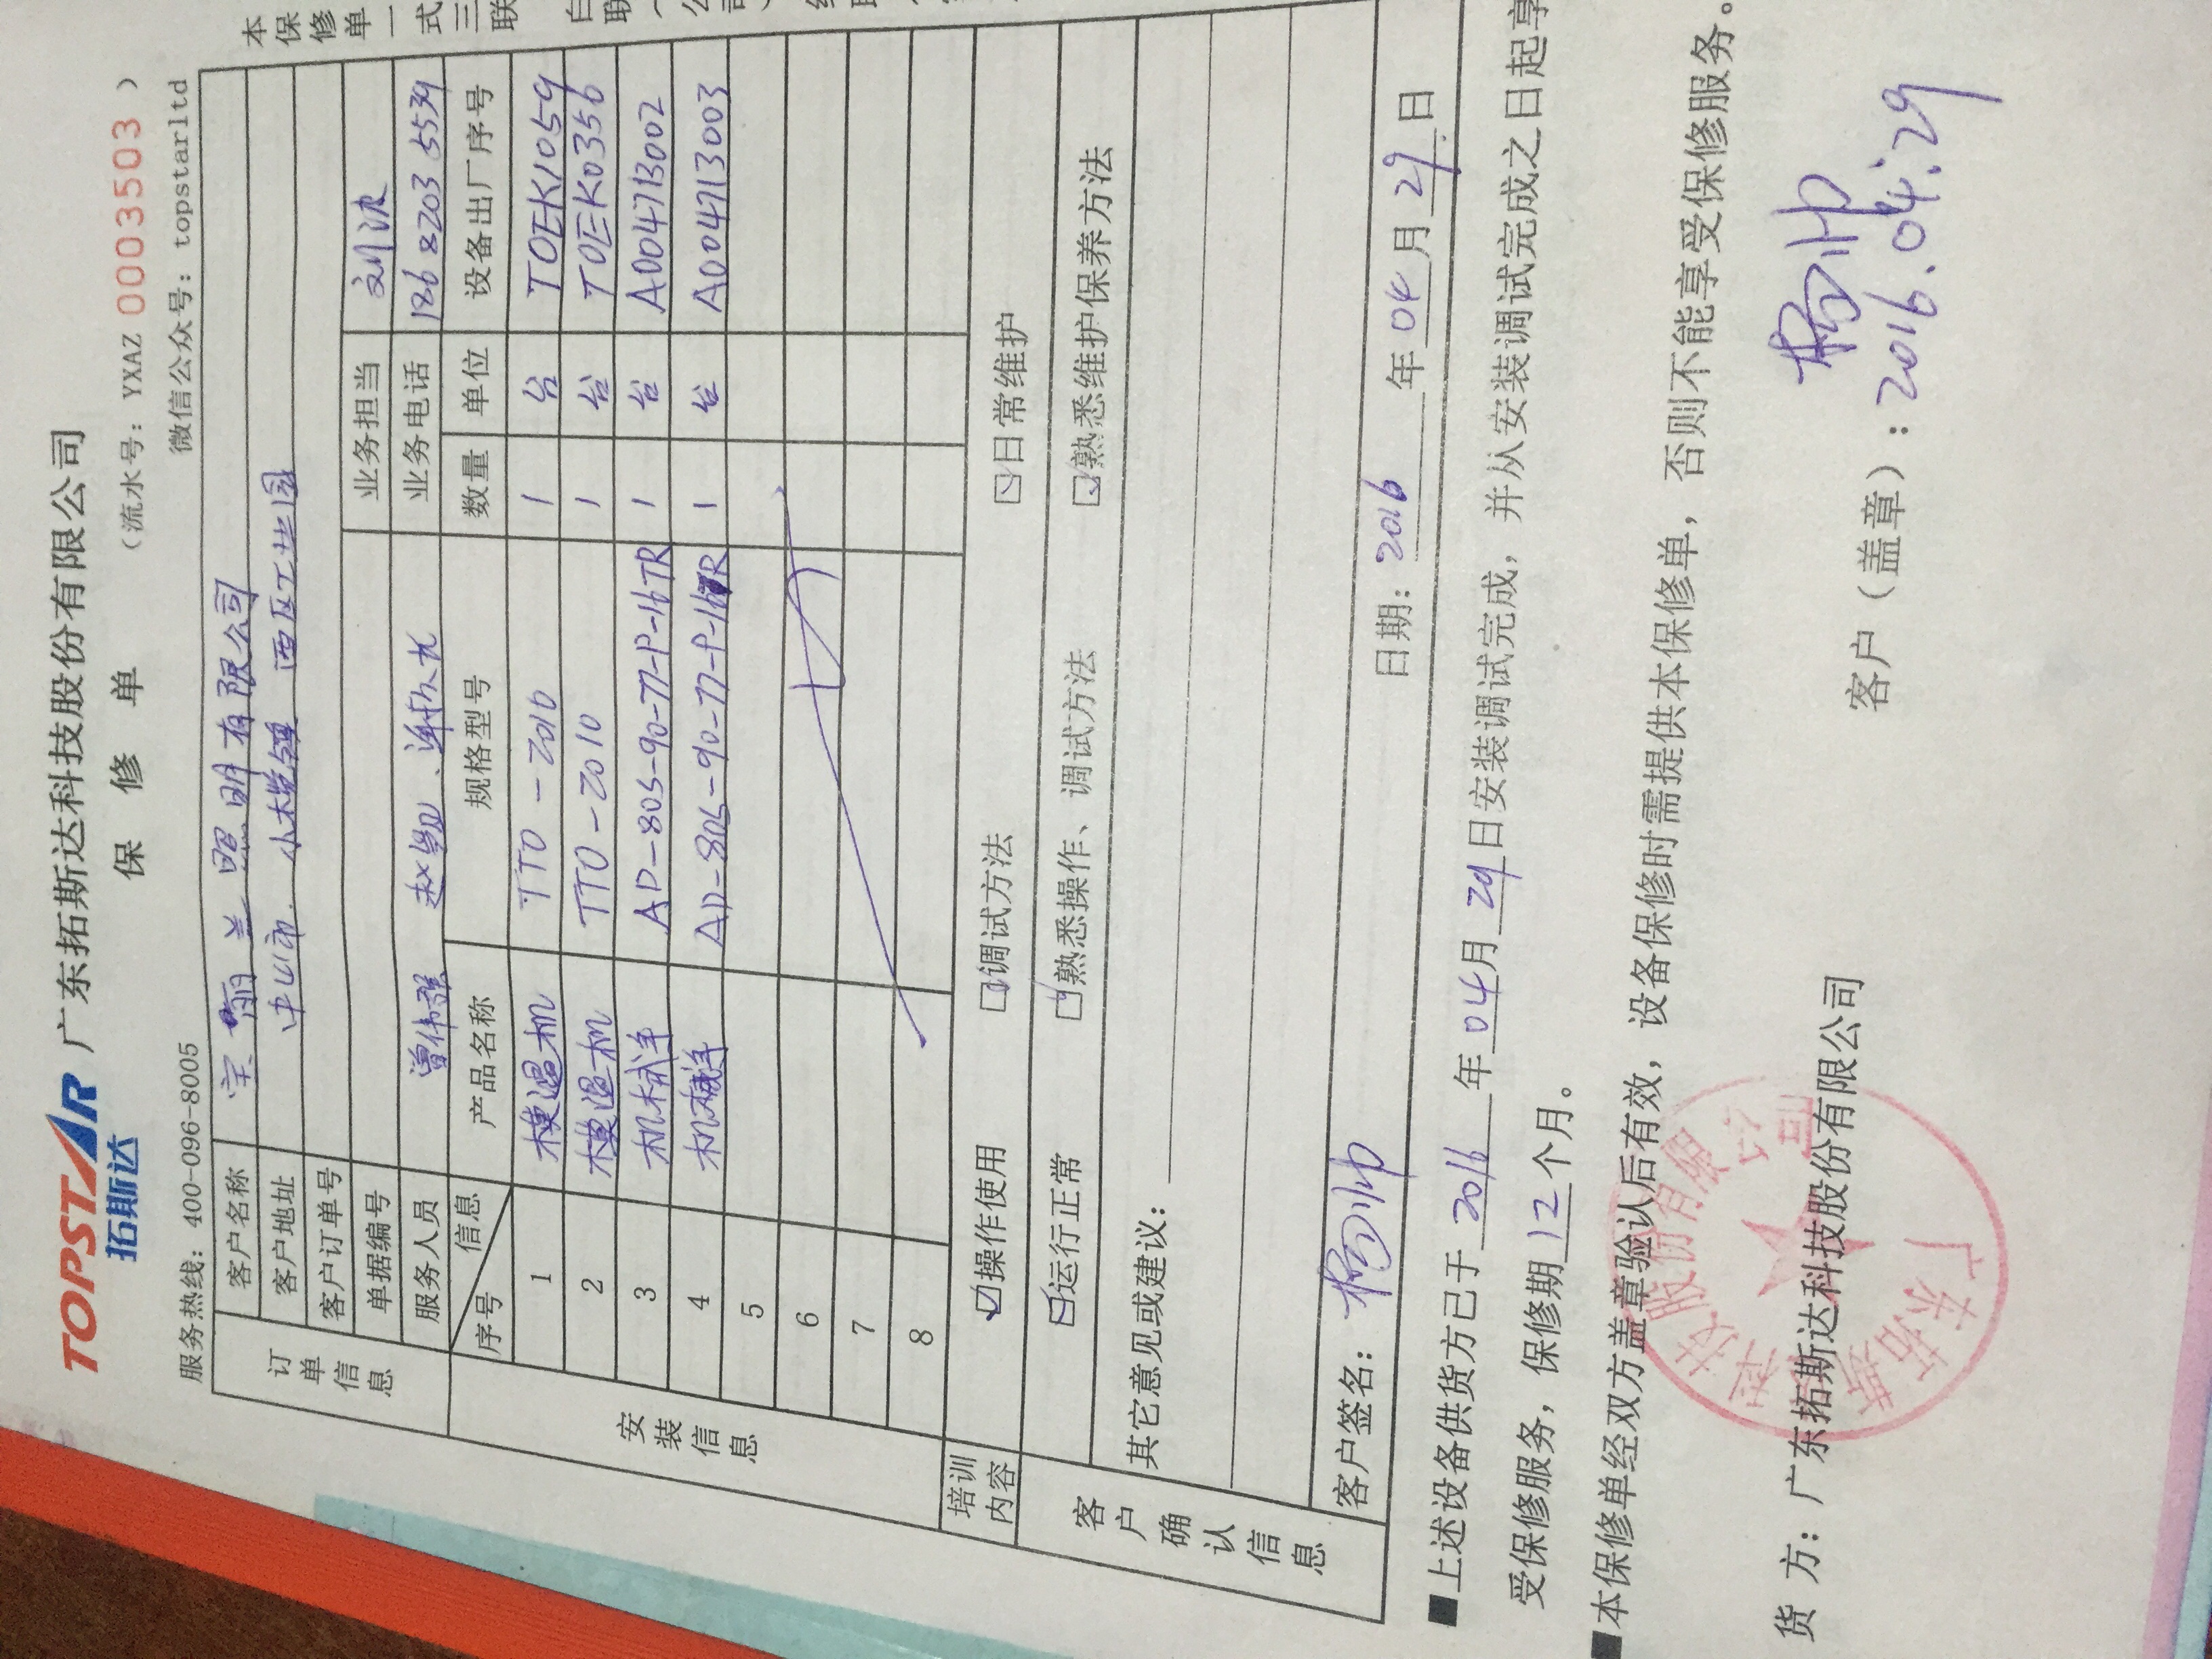 TOPSTAR 广东拓斯达科技股份有限公司
拓斯达
保 修 单
（流水号：YXAZ 0003503 ）
服务热线：400-096-8005
微信公众号：topstarltd
本保修单一式三联
订单信息
客户名称 宝丽兰照明有限公司
客户地址 中山市 小榄镇 西区工业园
客户订单号
单据编号 业务担当 刘波
服务人员 曾伟强 赵凯、 业务电话 186 8203 5539
序号 信息 产品名称 规格型号 数量 单位 设备出厂序号
安装信息
1 模温机 TTO-2010 1 台 TOEK1059
2 模温机 TTO-2010 1 台 TOEK0356
3 机械手 AP-80S-90-77-P-16TR 1 台 A004713002
4 机械手 AP-80S-90-77-P-16TR 1 台 A004713003
5
6
7
8
培训内容 ☑操作使用 ☑调试方法 ☑日常维护
客户确认信息
☑运行正常 ☑熟悉操作、调试方法 ☑熟悉维护保养方法
其它意见或建议：
客户签名：杨帅 日期：2016 年 04 月 29 日
■上述设备供货方已于 2016 年 04 月 29 日安装调试完成，并从安装调试完成之日起享
受保修服务，保修期 12 个月。
■本保修单经双方盖章验认后有效，设备保修时需提供本保修单，否则不能享受保修服务。
杨帅
货 方：广东拓斯达科技股份有限公司 客户（盖章）：2016.04.29
广东拓斯达科技股份有限公司